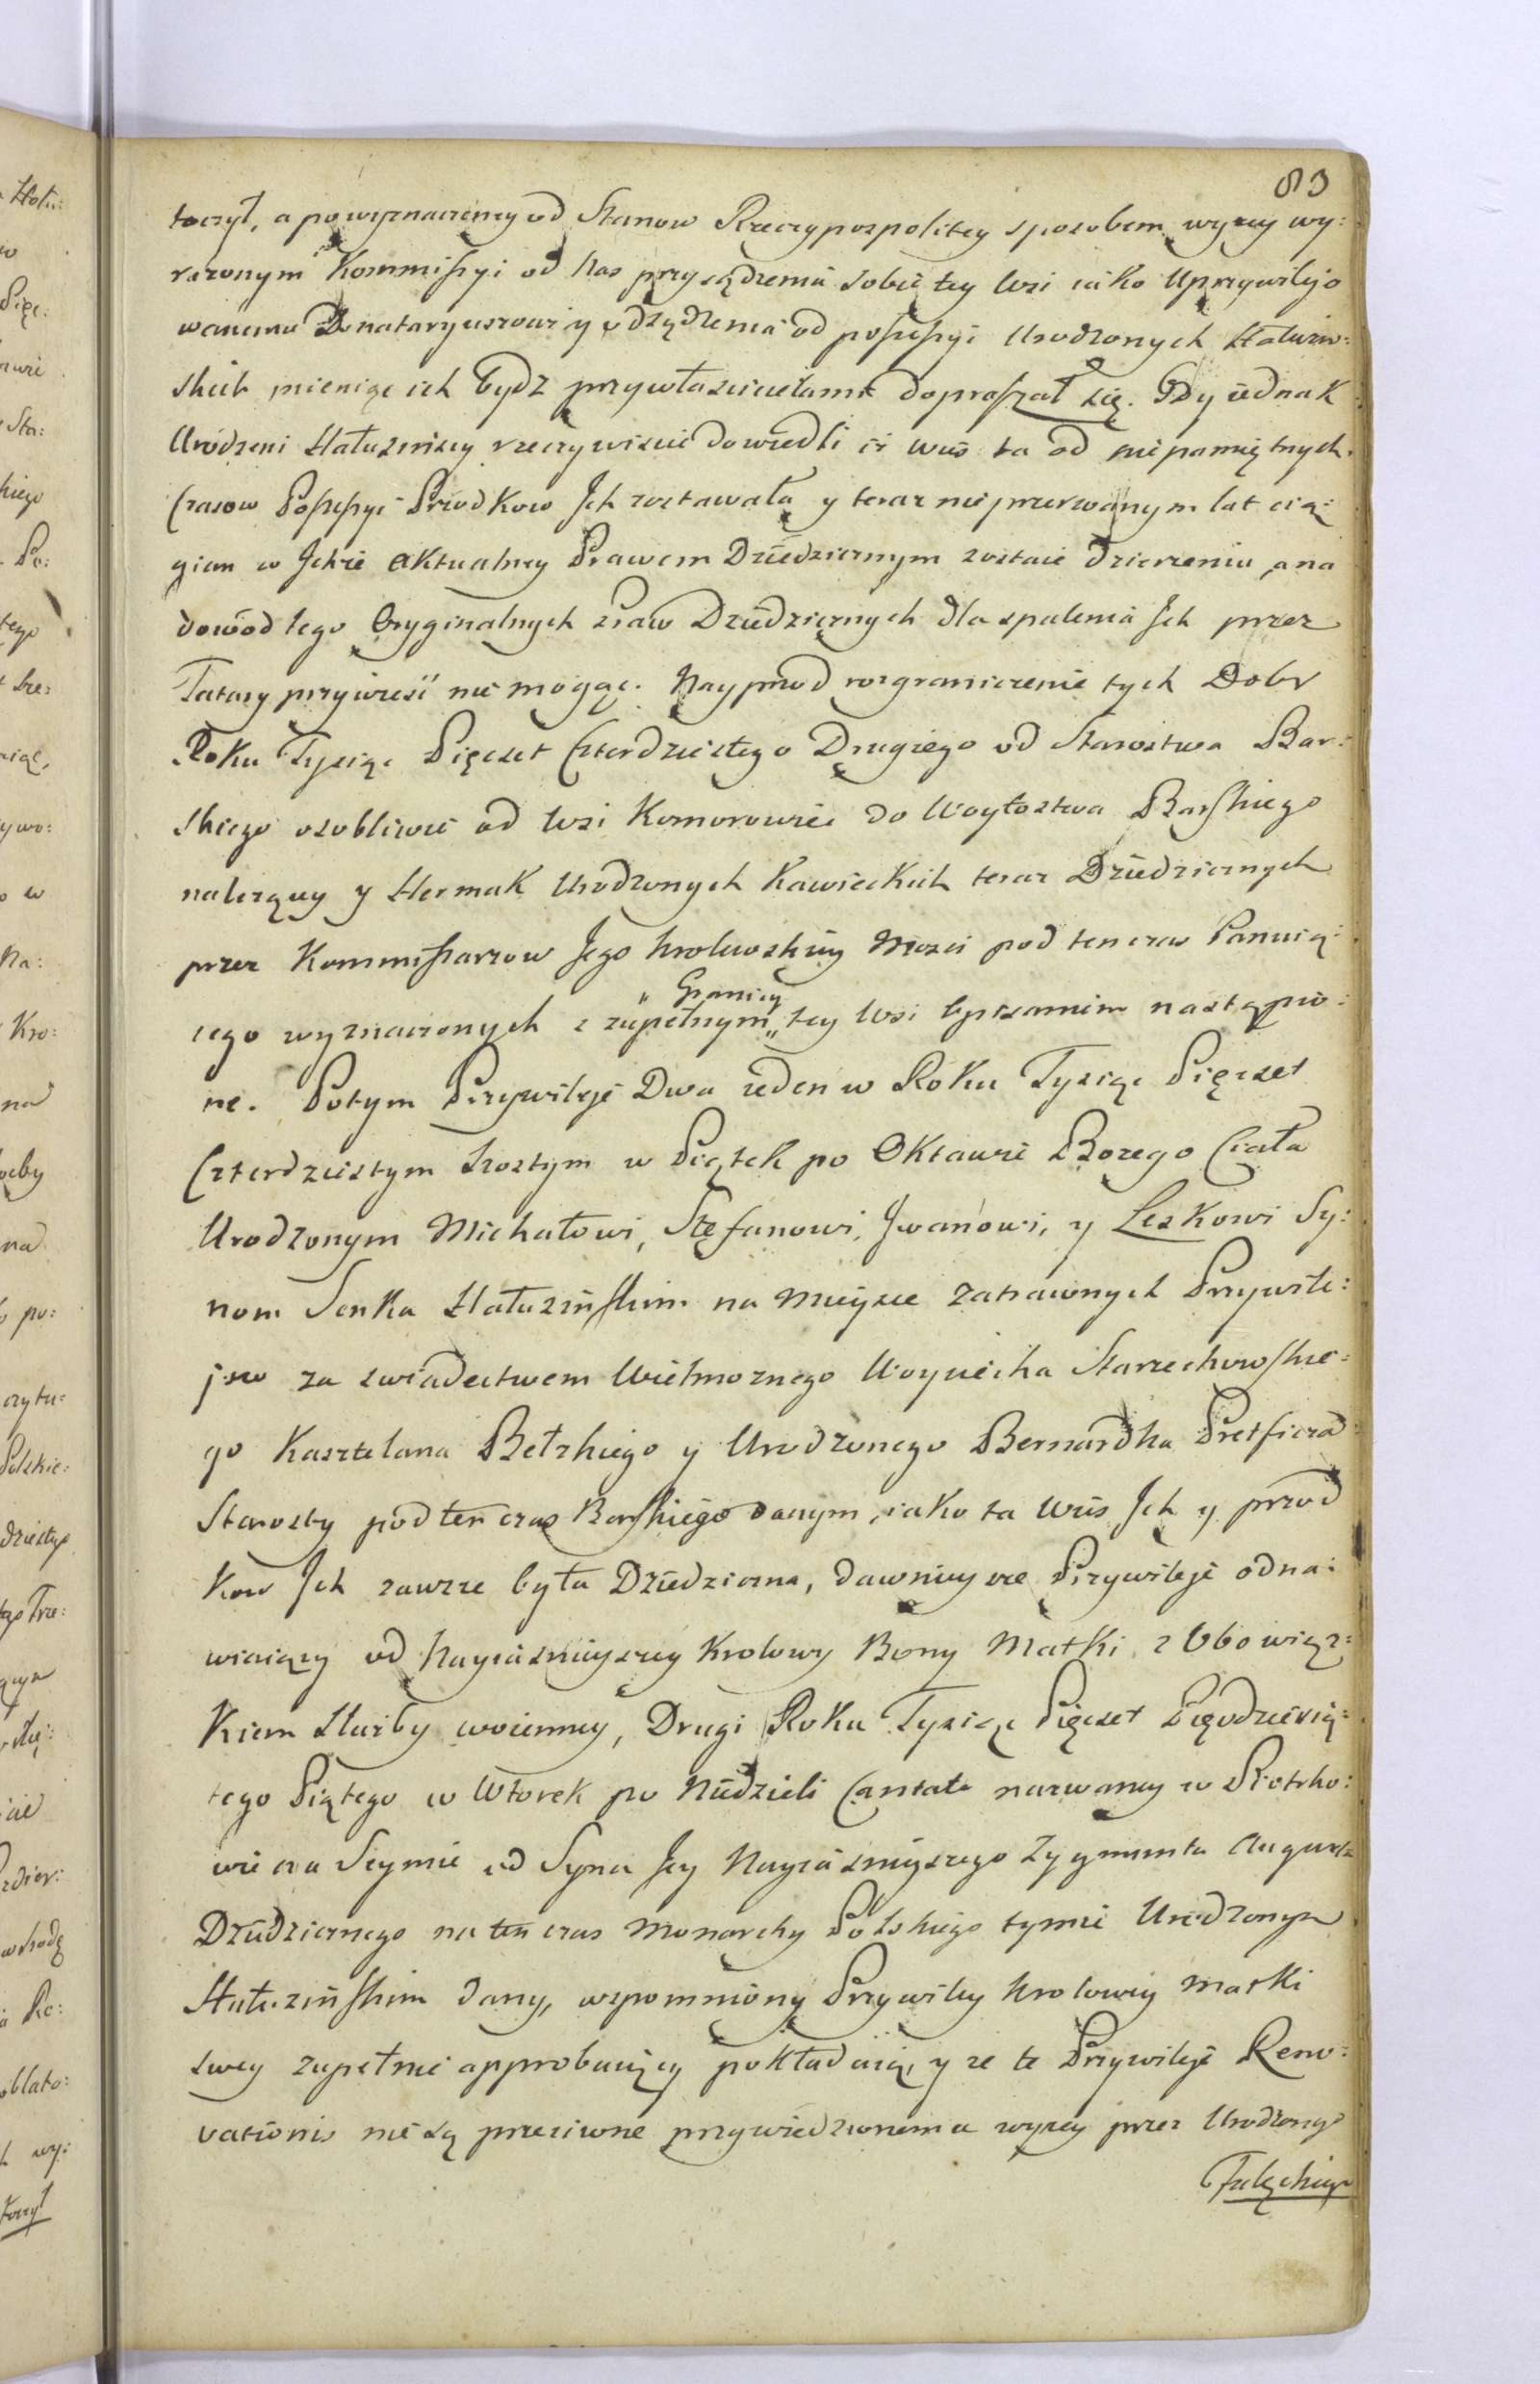 83
toczył, a po wyznaczoney od Stanow Rzeczypospolitey sposobem wyzey wy:
rażonym Kommissyi od Nas przysądzenia sobie tey Wsi iako Uprzywilejo
wanemu Donataryuszowi y odsądzenia od possessyi Urodzonych Hałuziń:
skich mieniąc ich bydz przywłaścicielami dopraszał się. Gdy iednak
Urodzeni Hałuzińscy rzeczywiście dowiedli iż wieś ta od niepamiętnych
Czasow Possessyi Przodkow Ich zostawała y teraz nieprzerwanym lat cią:
giem w Ichże aktualney Prawem Dziedzicznym zostaie dzierżeniu, a na
dowód tego Oryginalnych praw Dziedzicznych dla spalenia Ich przez
Tatary przywieść nie mogąc. Nayprzod rozgraniczenie tych Dobr
Roku Tysiąc Pięcset Czterdziestego Drugiego od Starostwa Bar:
skiego osobliwie od Wsi Komorowiec do Woytostwa Barskiego
należącey y Hermak Urodzonych Kawieckich teraz Dziedzicznych
przez Kommissarzow Jego Krolewskiey Mości pod ten czas Panuią:
cego wyznaczonych z zupełnym „Granicy„ tey Wsi opisaniem nastąpio:
ne. Potym Przywileje Dwa ieden w Roku Tysiąc Pięcset
Czterdziestym Szostym w Piątek po Oktawie Bożego Ciała
Urodzonym Michałowi, Stefanowi, Iwanowi, y Leskowi Sy:
nom Senka Hałuzińskim na mieysce zatraconych Przywile:
jow za swiadectwem Wielmożnego Woyciecha Starzechowskie:
go Kasztelana Bełzkiego y Urodzonego Bernardha Pretficza
Starosty pod ten czas Barskiego danym, iako ta Wieś Ich y przod
kow Ich zawsze była Dziedziczna, dawnieysze Przywileje odna:
wiaiący od Nayiaśnieyszey Krolowy Bony Matki z Obowiąz:
kiem służby woienney, Drugi Roku Tysiąc Pięcset Pięćdziesią:
tego Piątego w Wtorek po Niedzieli Cantate nazwaney w Piotrko:
wie na Seymie od Syna Jey Nayiaśnieyszego Zygmunta Augusta
Dziedzicznego na ten czas Monarchy Polskiego tymże Urodzonym
Hałuzińskim dany, wspomniony Przywiley Krolowey Matki
swey zupełnie approbuiący pokładaiąc, y że te Przywileje Reno:
vationis nie są przeciwne przywiedzionemu wyżey przez Urodzonego
Falęckiego